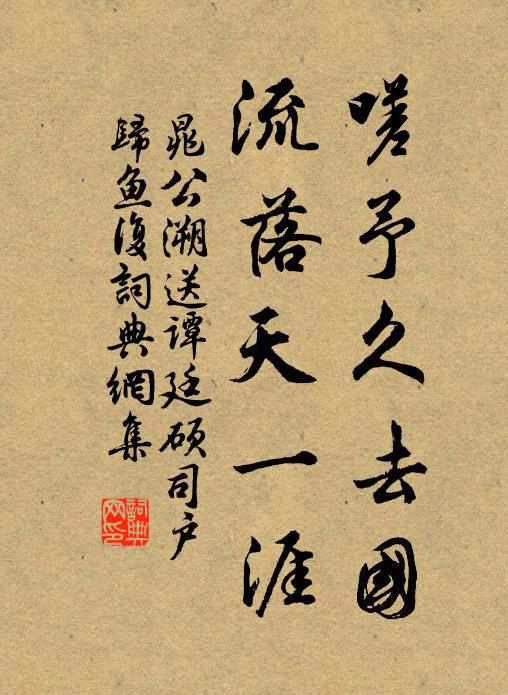 嗟予久去國
流落天一涯
晁公溯送譚廷碩司戶
歸魚復詞典網集
詞典
网印